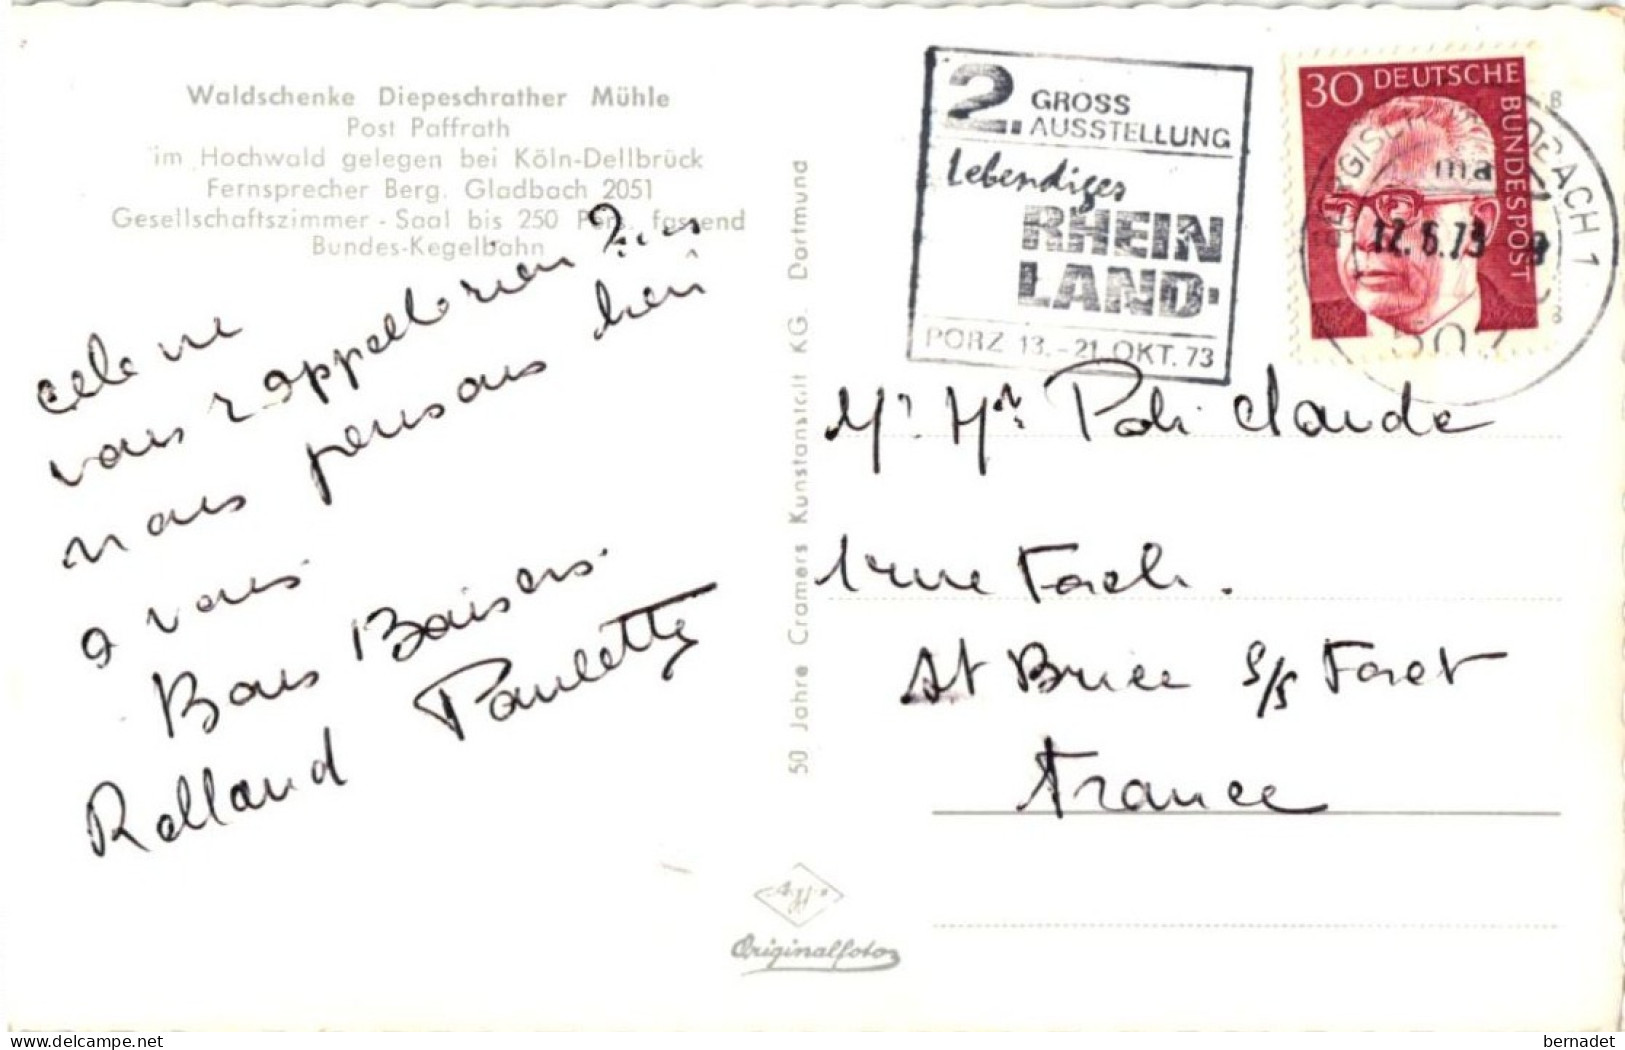 Waldschenke Diepeschrather Mühle
Post Paffrath
im Hochwald gelegen bei Köln-Dellbrück
Fernsprecher Berg. Gladbach 2051
Gesellschaftszimmer - Saal bis 250 Pers. fassend
Bundes-Kegelbahn
celane
vous rappelle rien ?
nous pensons bien
a vous
Bons Baisers.
Rolland Paulette
50 Jahre Cramers Kunstanstalt KG. Dortmund
Originalfoto
2. GROSS
AUSSTELLUNG
Lebendiges
RHEIN
LAND·
PORZ 13.-21. OKT. 73
30 DEUTSCHE
BUNDESPOST
12.6.73
507
Mr Mme Poli Claude
1 rue Foch.
St Brice s/s Foret
France
bernadet